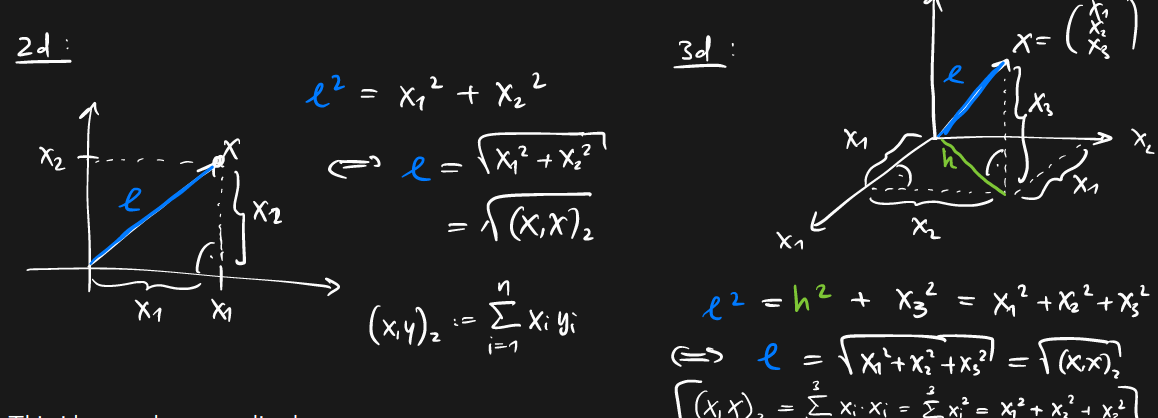 2d:
ℓ² = x₁² + x₂²
⟺ ℓ = √(x₁² + x₂²)
= √(x,x)₂
x₂
x
ℓ
x₂
x₁
x₁
(x,y)₂ := Σᵢ₌₁ⁿ xᵢ yᵢ
3d:
x = (x₁ x₂ x₃)
ℓ
x₃
x₁
x₂
h
x₁
x₂
x₁
ℓ² = h² + x₃² = x₁² + x₂² + x₃²
⟺ ℓ = √(x₁² + x₂² + x₃²) = √(x,x)₂
(x,x)₂ = Σ³ xᵢ·xᵢ = Σ³ xᵢ² = x₁² + x₂² + x₃²